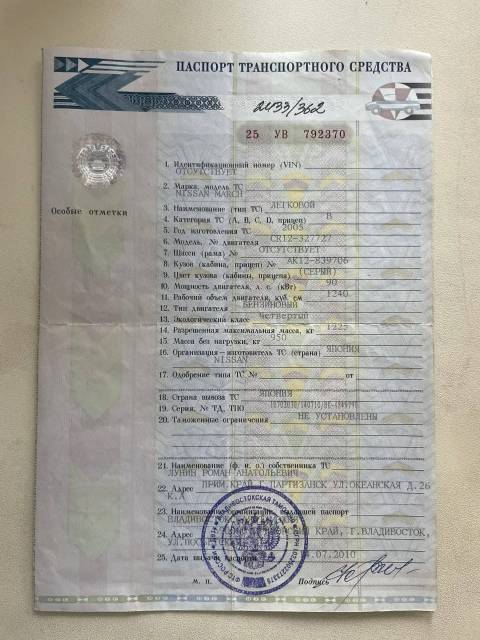 ПАСПОРТ ТРАНСПОРТНОГО СРЕДСТВА
2433/362
25 УВ 792370
Особые отметки
1. Идентификационный номер (VIN)
ОТСУТСТВУЕТ
2. Марка, модель ТС
NISSAN MARCH
3. Наименование (тип ТС) ЛЕГКОВОЙ
4. Категория ТС (A, B, C, D, прицеп) B
5. Год изготовления ТС 2005
6. Модель, № двигателя CR12-327727
7. Шасси (рама) № ОТСУТСТВУЕТ
8. Кузов (кабина, прицеп) № AK12-839706
9. Цвет кузова (кабины, прицепа) (СЕРЫЙ)
10. Мощность двигателя, л. с. (кВт) 90
11. Рабочий объем двигателя, куб. см 1240
12. Тип двигателя БЕНЗИНОВЫЙ
13. Экологический класс четвертый
14. Разрешенная максимальная масса, кг 1225
15. Масса без нагрузки, кг 950
16. Организация—изготовитель ТС (страна) ЯПОНИЯ
NISSAN
17. Одобрение типа ТС № от
18. Страна вывоза ТС ЯПОНИЯ
19. Серия, № ТД, ТПО
20. Таможенные ограничения НЕ УСТАНОВЛЕНЫ
21. Наименование (ф. и. о.) собственника ТС
ЛУНИН РОМАН АНАТОЛЬЕВИЧ
22. Адрес ПРИМ.КРАЙ,Г.ПАРТИЗАНСК УЛ.ОКЕАНСКАЯ Д.26
К.А
23. Наименование организации, выдавшей паспорт
24. Адрес КРАЙ,Г.ВЛАДИВОСТОК,
25. Дата выдачи паспорта .07.2010
М. П. Подпись